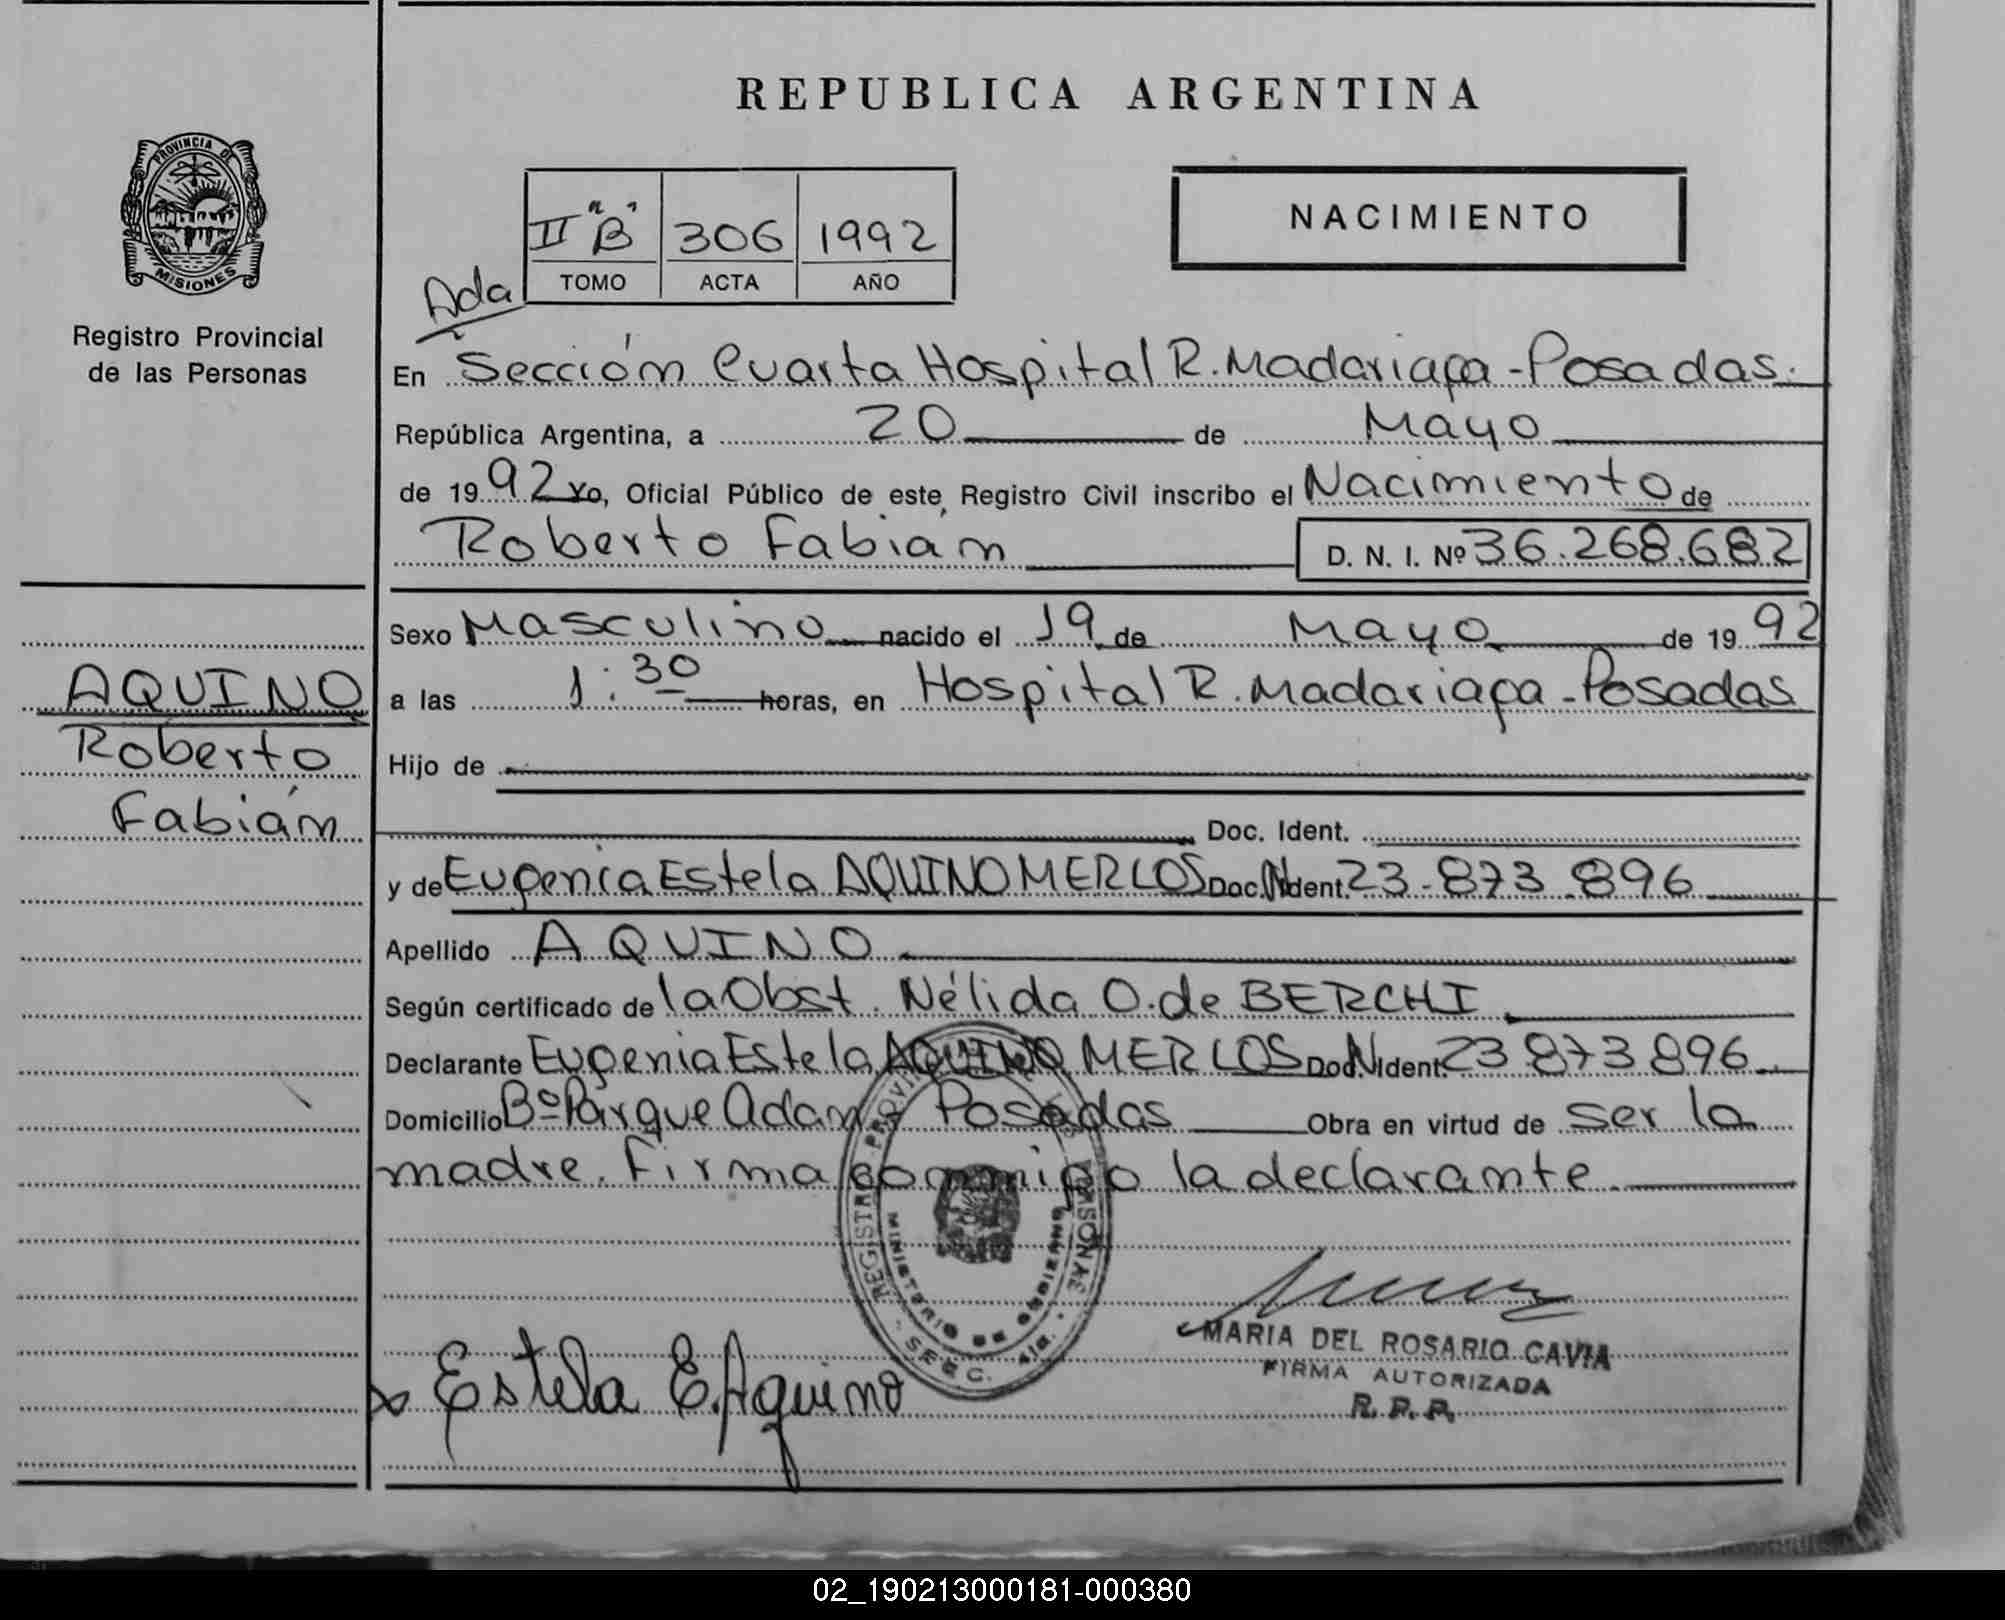 REPUBLICA ARGENTINA
PROVINCIA DE
MISIONES
Registro Provincial
de las Personas
II "B" 306 1992
TOMO ACTA AÑO
NACIMIENTO
Ada
En Sección Cuarta Hospital R. Madariaga - Posadas.
República Argentina, a 20 de Mayo
de 1992 Yo, Oficial Público de este Registro Civil inscribo el Nacimiento de
Roberto Fabián D. N. I. Nº 36.268.682
Sexo Masculino nacido el 19 de Mayo de 1992
a las 1:30 horas, en Hospital R. Madariaga - Posadas
Hijo de
Doc. Ident.
y de Eugenia Estela AQUINO MERLOS Doc. N Ident. 23.873.896
Apellido AQUINO
Según certificado de la Obst. Nélida O. de BERCHI
Declarante Eugenia Estela AQUINO MERLOS Doc. N Ident. 23.873.896
Domicilio Bº Parque Adam - Posadas Obra en virtud de ser la
madre. Firma conmigo la declarante.
AQUINO
Roberto
Fabián
MINISTERIO DE GOBIERNO
Estela E. Aquino
MARIA DEL ROSARIO CAVIA
FIRMA AUTORIZADA
R. P. P.
02_190213000181-000380